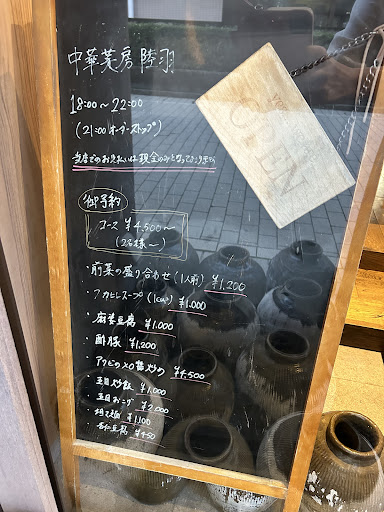 中華菜房 陸羽
18:00〜22:00
(21:00 オーダーストップ)
当店でのお支払いは現金のみとなっております
御予約
コース ¥4,500〜
(2名様〜)
・前菜の盛り合わせ(1人前) ¥1,200
・フカヒレスープ(1cup) ¥1,000
・麻婆豆腐 ¥1,000
・酢豚 ¥1,200
・アワビのXO醤炒め ¥4,500
五目炒飯 ¥1,000
五目おこげ ¥2,000
担々麺 ¥1,100
杏仁豆腐 ¥450
OPEN